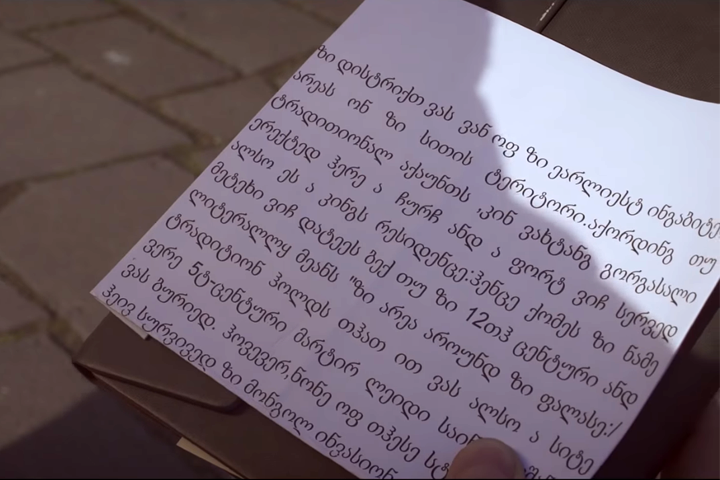 ზი დისტრიქთ ვას ვან ოფ ზი ეარლიესტ ინგაბიტე
არეას ონ ზი სითის ტერიტორი.აქორდინგ თუ
ტრადითიონალ აქაუნთს კინ ვახტანგ გორგასალი
ერექტედ ჰერე ა ჩურჩ ანდ ა ფორტ ვიჩ სერვედ
ალსო ეს ა კინგს რესიდენცე:ჰენცე ქომეს ზი ნამე
მეტეხი ვიჩ დატეეს ბექ თუ ზი 12თჰ ცენტური ანდ
ლიტერალლყ მეანს "ზი არეა აროუნდ ზი ფალასე:/
ტრადიტიონ ჰოლდს თჰათ ით ვას ალსო ა სიტე
ვერე 5ტ-ცენტური მარტირ ლეიდი საინ
ვას ბურიედ. ჰოვევერ,ნონე ოფ თჰესე სტ
ჰევ სურვივედ ზი მონგოლ ინვასიონ